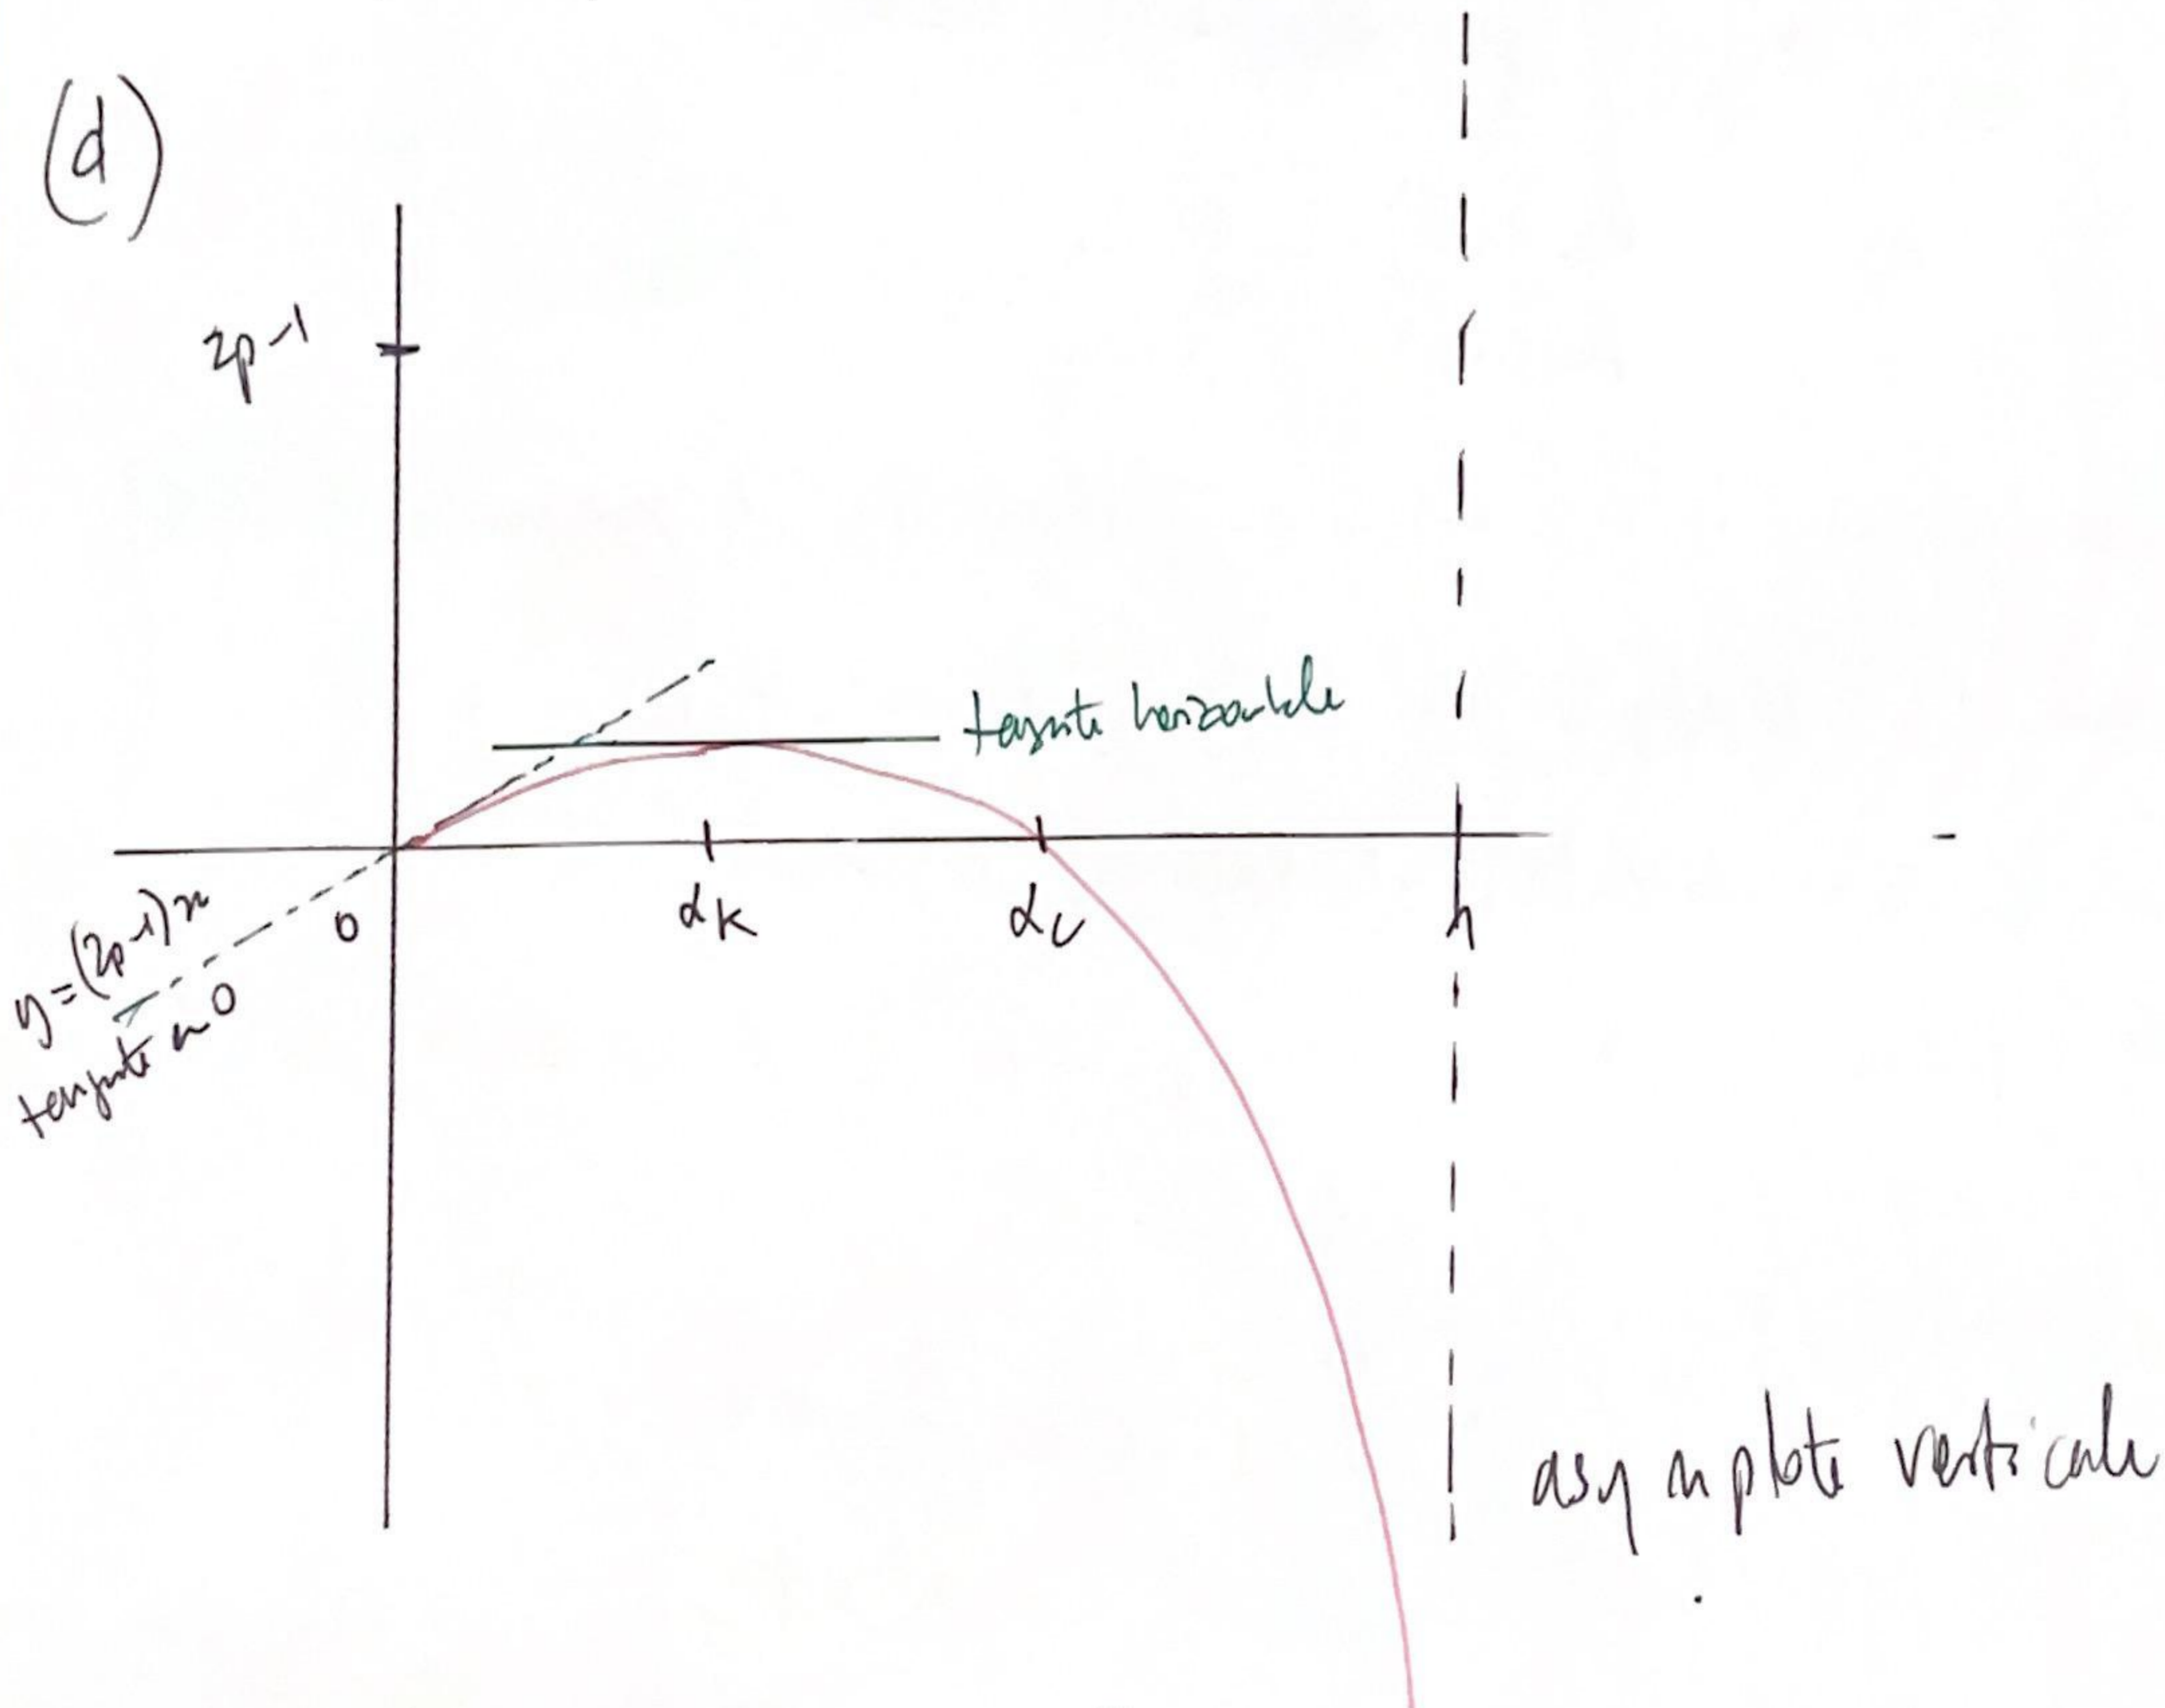 (d)
2p-1
tangente horizontale
0
αK
αc
1
y=(2p-1)x
tangente en 0
asymptote verticale